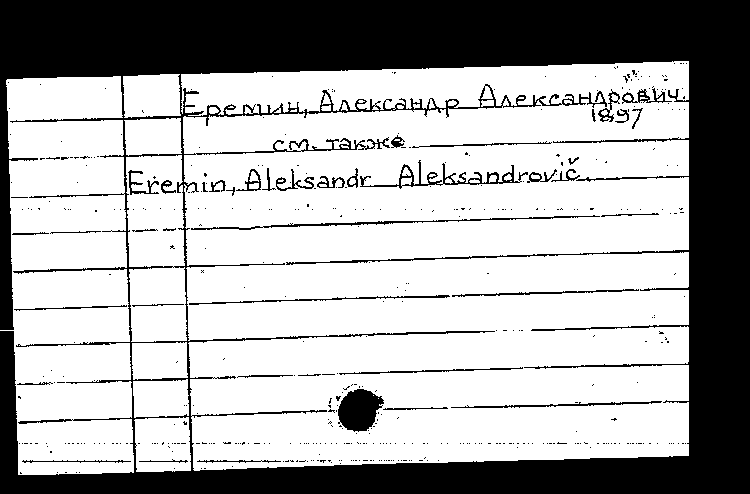 Еремин, Александр Александрович.
1897
см. также
Eremin, Aleksandr Aleksandrovič.